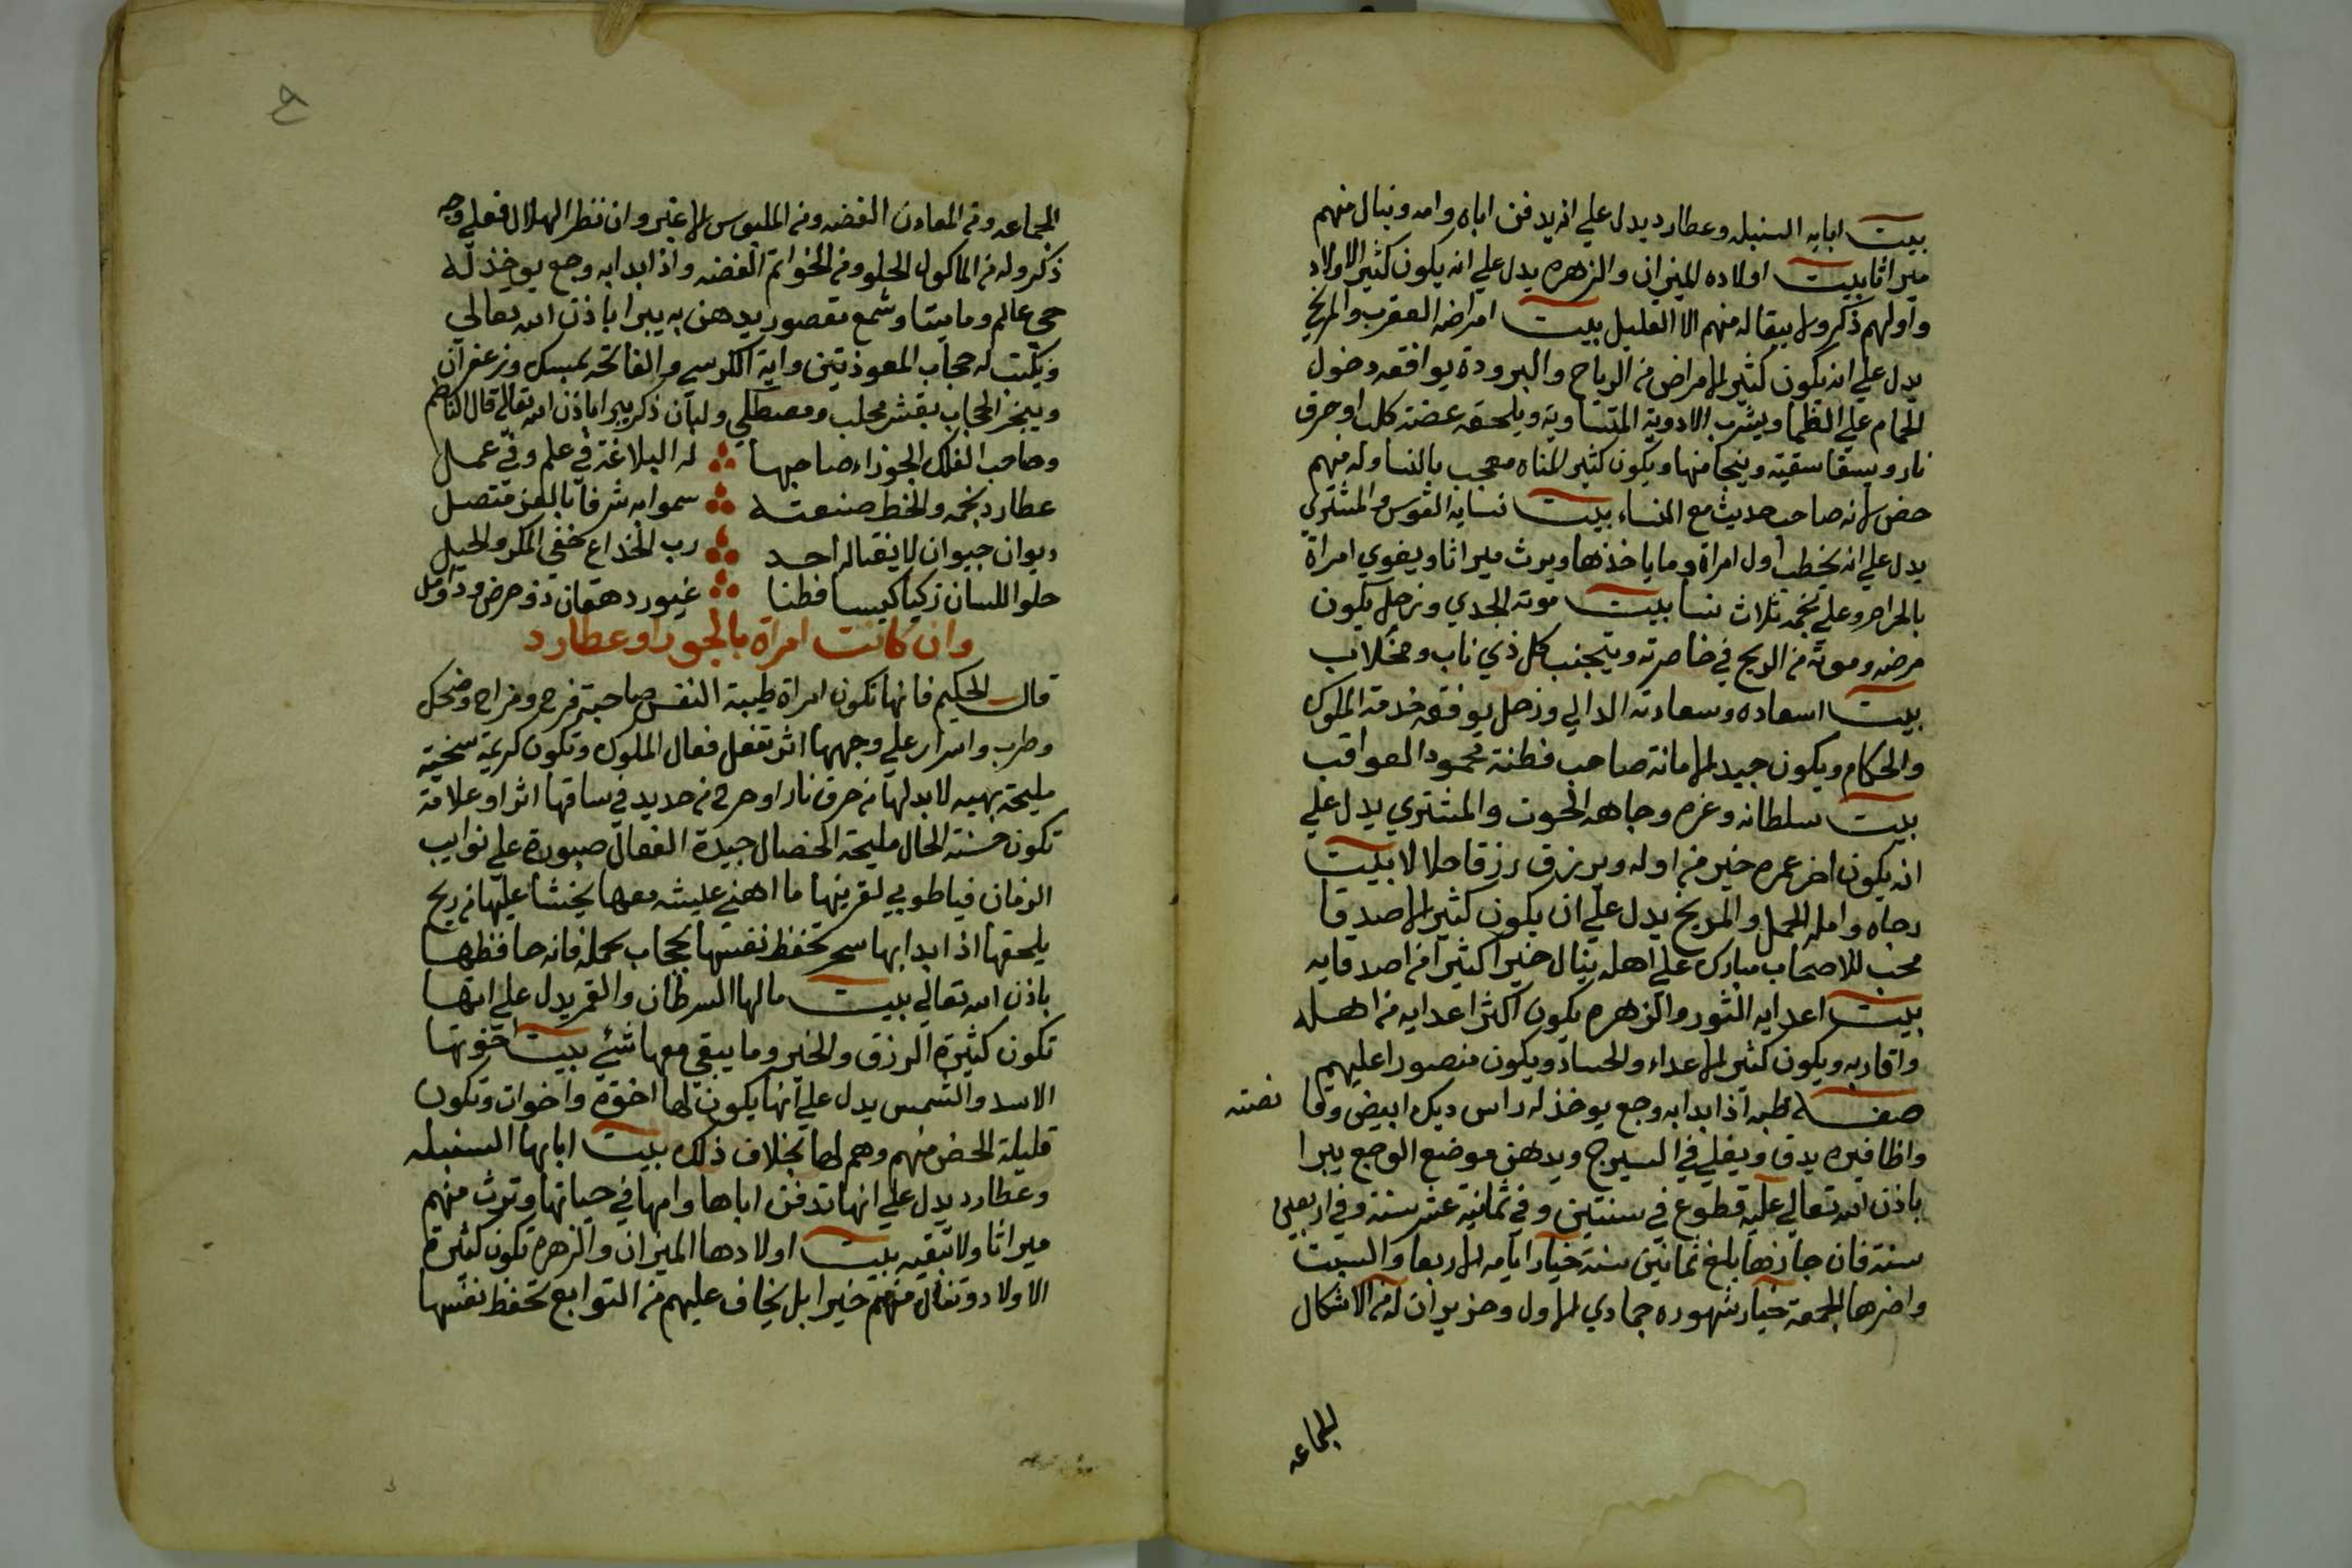 بيت ابايه السنبله وعطارد يدل علي انه يدفن اباه وامه وينال منهم
ميراثا بيت اولاده الميزان والزهره يدل علي انه يكون كثير الاولاد
واولهم ذكر ولا يبقا له منهم الا القليل بيت امراضه العقرب والمريخ
يدل علي انه يكون كثير الامراض من الرياح والبرودة يوافقه دخول
الحمام علي الظما ويشرب الادوية المتساوية ويلحقه عضة كلب او حرق
نار ويسقا سقية وينجا منها ويكون كثير المناه معجب بالنسا وله منهم
حض لانه صاحب حديث مع النساء بيت نسايه القوس والمشتري
يدل علي انه يخطب اول امراة وما ياخذها ويرث ميراثا ويغوي امراة
بالحرام وعلي نجمه ثلاث نسا بيت موته الجدي وزحل يكون
مرضه وموته من الريح في خاصرته ويتجنب كل ذي ناب ومخلاب
بيت اسعاده وسعادته الدالي وزحل يوفقه خدمة الملوك
والحكام ويكون جيد الامانة صاحب فطنة محمود العواقب
بيت سلطانه وعزه وجاهه الحوت والمشتري يدل علي
انه يكون اخر عمره خير من اوله ويرزق رزقا حلالا بيت
رجاه وامله الحمل والمريخ يدل علي ان يكون كثير الاصدقا
محب للاصحاب مبارك علي اهله ينال خيرا كثيرا من اصدقايه
بيت اعدايه الثور والزهره يكون اكثر اعدايه من اهله
واقاربه ويكون كثير الاعداء والحساد ويكون منصورا عليهم
صفة طبه اذا بدا به وجع يوخذ له راس ديك ابيض وقا نصته
واظافيره يدق ويغلي في السيرج ويدهن موضع الوجع يبرا
باذن الله تعالي عليه قطوع في سنتين وفي ثمانية عشر سنة وفي اربعين
سنة فان جازها بلغ ثمانين سنة خيار ايامه الاربعا والسبت
واخرها الجمعة خيار شهوره جمادي الاول وحزيران له من الاشكال
الجماعه
الجماعه ومن المعادن الفضه ومن الملبوس الاغبر وان نظر الهلال فعلي وجه
ذكر وله من الماكول الحلو ومن الخواتم الفضه واذا بدا به وجع يوخذ له
حي عالم وماميتا وشمع مقصور يدهن به يبرا باذن الله تعالي
ويكتب له حجاب المعوذتين واية الكرسي والفاتحه بمسك وزعفران
ويبخر الحجاب بقشر محلب ومصطكي ولبان ذكر يبرا باذن الله تعالي قال الناظم
وصاحب الفلك الجوزاء صاحبها له البلاغة في علم وفي عمل
عطارد نجمه والخط صنعته سموا به شرفا بالعز متصل
ديوان جيوان لا يبقا له احد رب الخداع بخفي المكر والحيل
حلو اللسان زكيا كيسا فطنا غيور دهقان ذو حرض وذ اومل
وان كانت امراة بالجوزا وعطارد
قال الحكيم فانها تكون امراة طيبة النفس صاحبة فرح ومزاح وضحك
وطرب واسرار علي وجهها اثر تفعل فعال الملوك وتكون كريمة سخية
مليحة بهيه لابد لها من حرق نار او جرح من حديد في ساقها اثر او علامة
تكون حسنة الحال مليحة الخصال جيدة الفعال صبورة علي نوايب
الزمان فيا طوبي لقرينها ما اهني عليشه معها يخشا عليها من ريح
يلحقها اذا بدا بها سحر تحفظ نفسها بحجاب تحمله فانه حافظها
باذن الله تعالي بيت مالها السرطان والقمر يدل علي انها
تكون كثيرة الرزق والخير وما يبقي معها شئ بيت اخوتها
الاسد والشمس يدل علي انها يكون لها اخوة واخوات وتكون
قليلة الحض منهم وهم لها بخلاف ذلك بيت ابايها السنبله
وعطارد يدل علي انها تدفن اباها وامها في حياتها وترث منهم
ميراثا ولا تبقيه بيت اولادها الميزان والزهره تكون كثيرة
الاولاد وتنال منهم خيرا بل يخاف عليهم من التوابع تحفظ نفسها